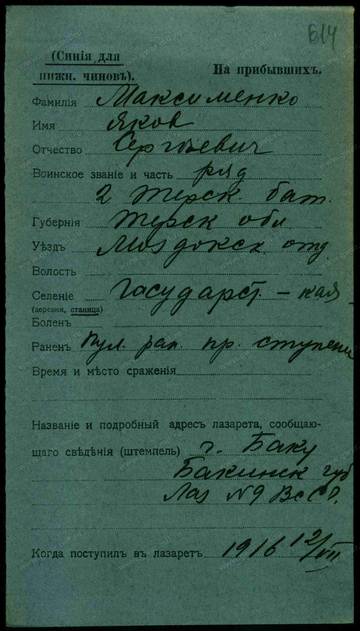 Б14
(Синія для
нижн. чиновъ).
На прибывшихъ.
Фамилія Максименко
Имя Яков
Отчество Сергѣевич
Воинское званіе и часть ряд
2 Терск. бат.
Губернія Терск обл
Уѣздъ Моздокск отд
Волость
Селеніе Государст. - кая
(деревня, станица)
Боленъ
Раненъ Пул. ран. пр. ступени
Время и мѣсто сраженія
Названіе и подробный адресъ лазарета, сообщаю-
щаго свѣдѣнія (штемпель) г. Баку
Бакинск губ
Лаз №9
Когда поступилъ въ лазаретъ 1916 12/VII